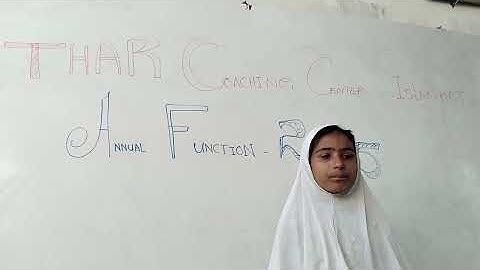 THAR COACHING CENTER
ANNUAL FUNCTION -